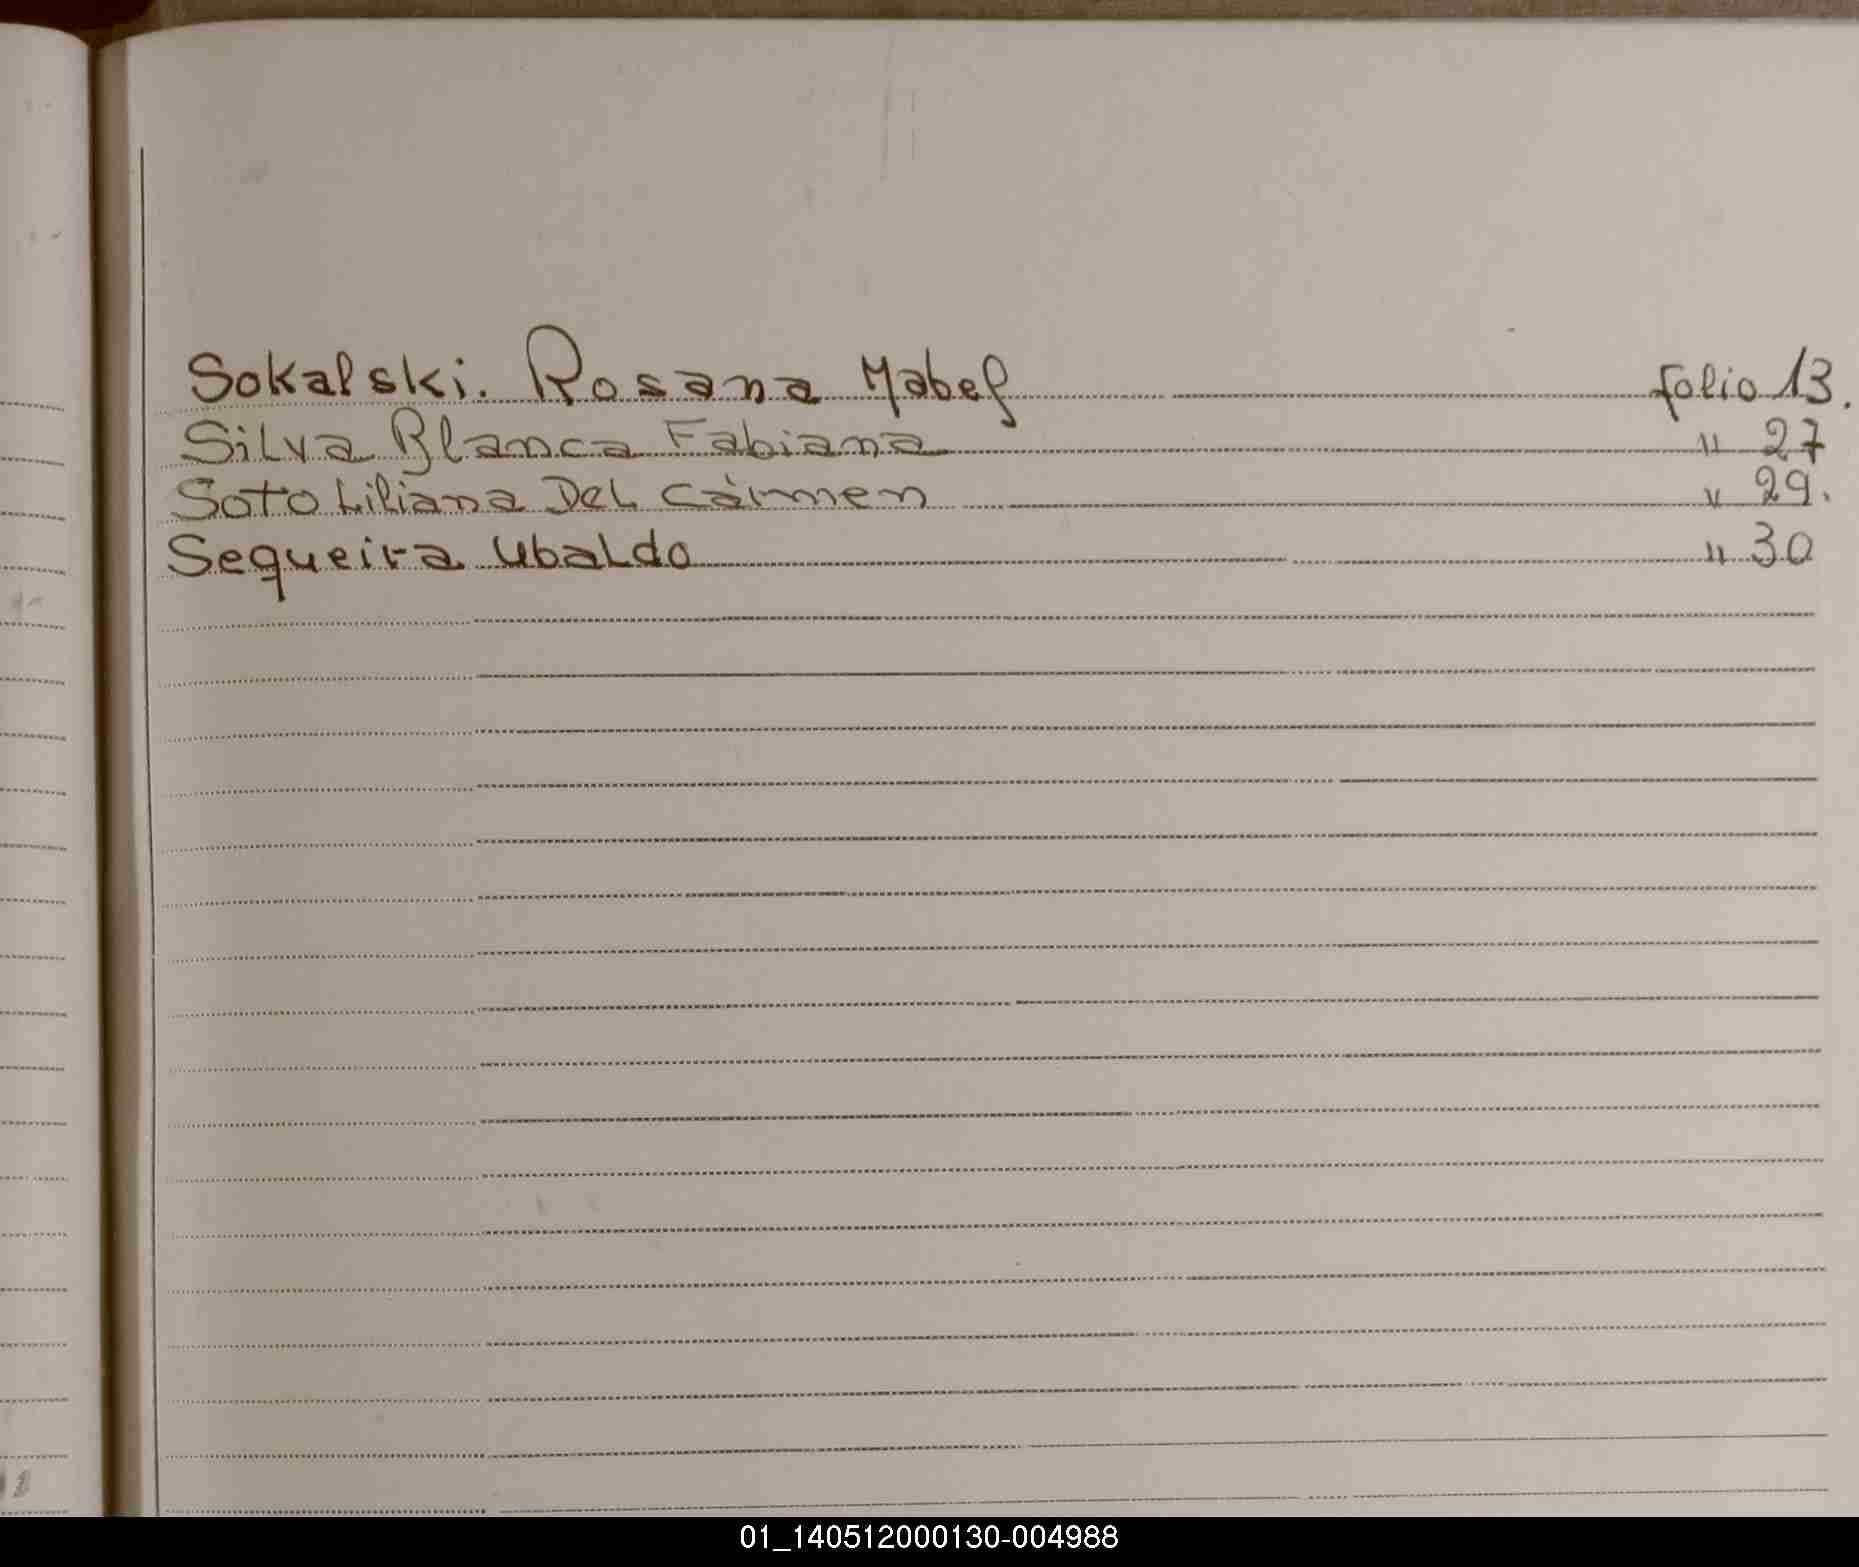 Sokalski. Rosana Mabel folio 13.
Silva Blanca Fabiana " 27
Soto Liliana Del Cármen " 29.
Sequeira Ubaldo " 30
01_140512000130-004988